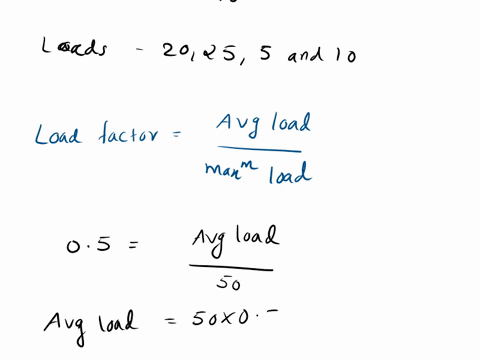 Loads - 20, 25, 5 and 10
Load factor = Avg load / maxᵐ load
0.5 = Avg load / 50
Avg load = 50x0.